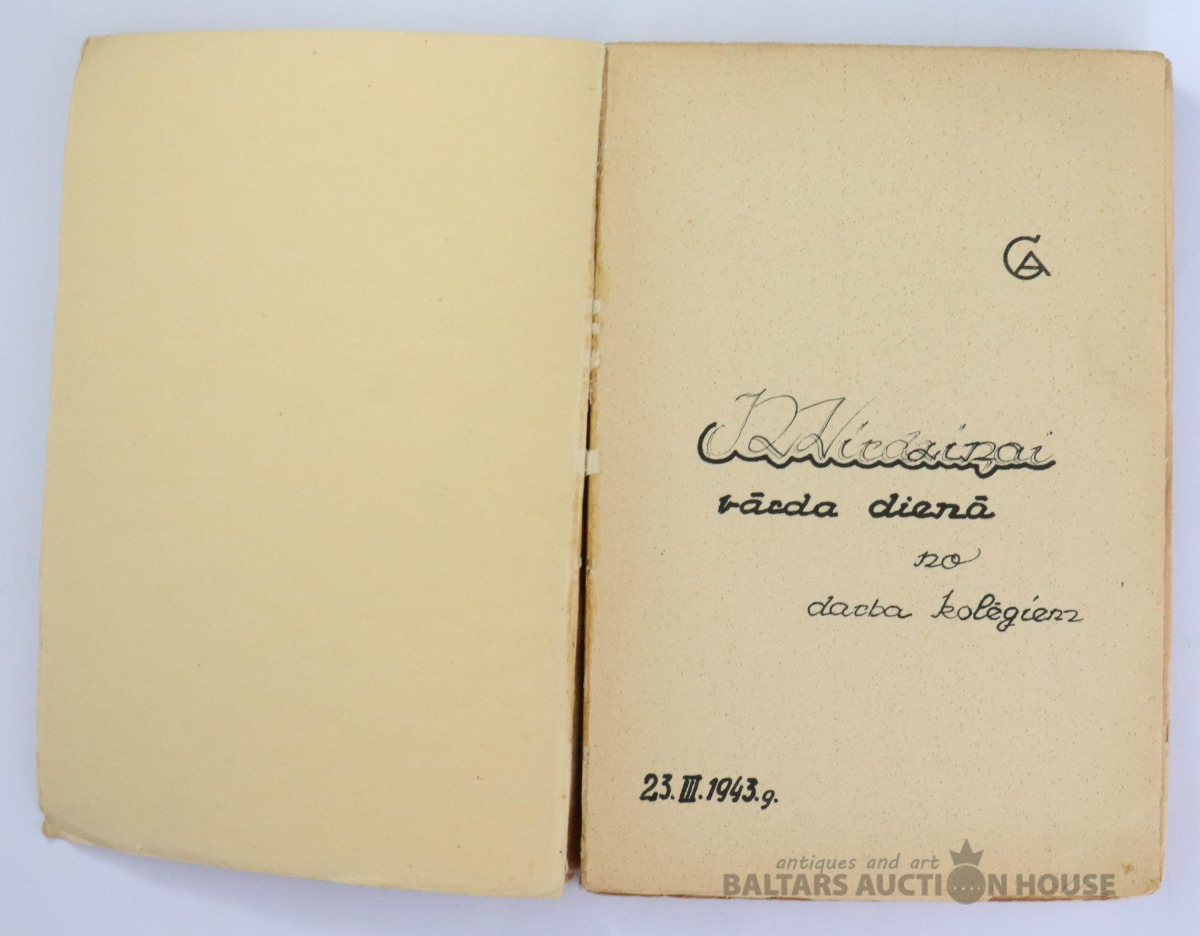 GA
Virdziņai
vārda dienā
no
darba kolēgiem
23.III.1943.g.
antiques and art
BALTARS AUCTION HOUSE